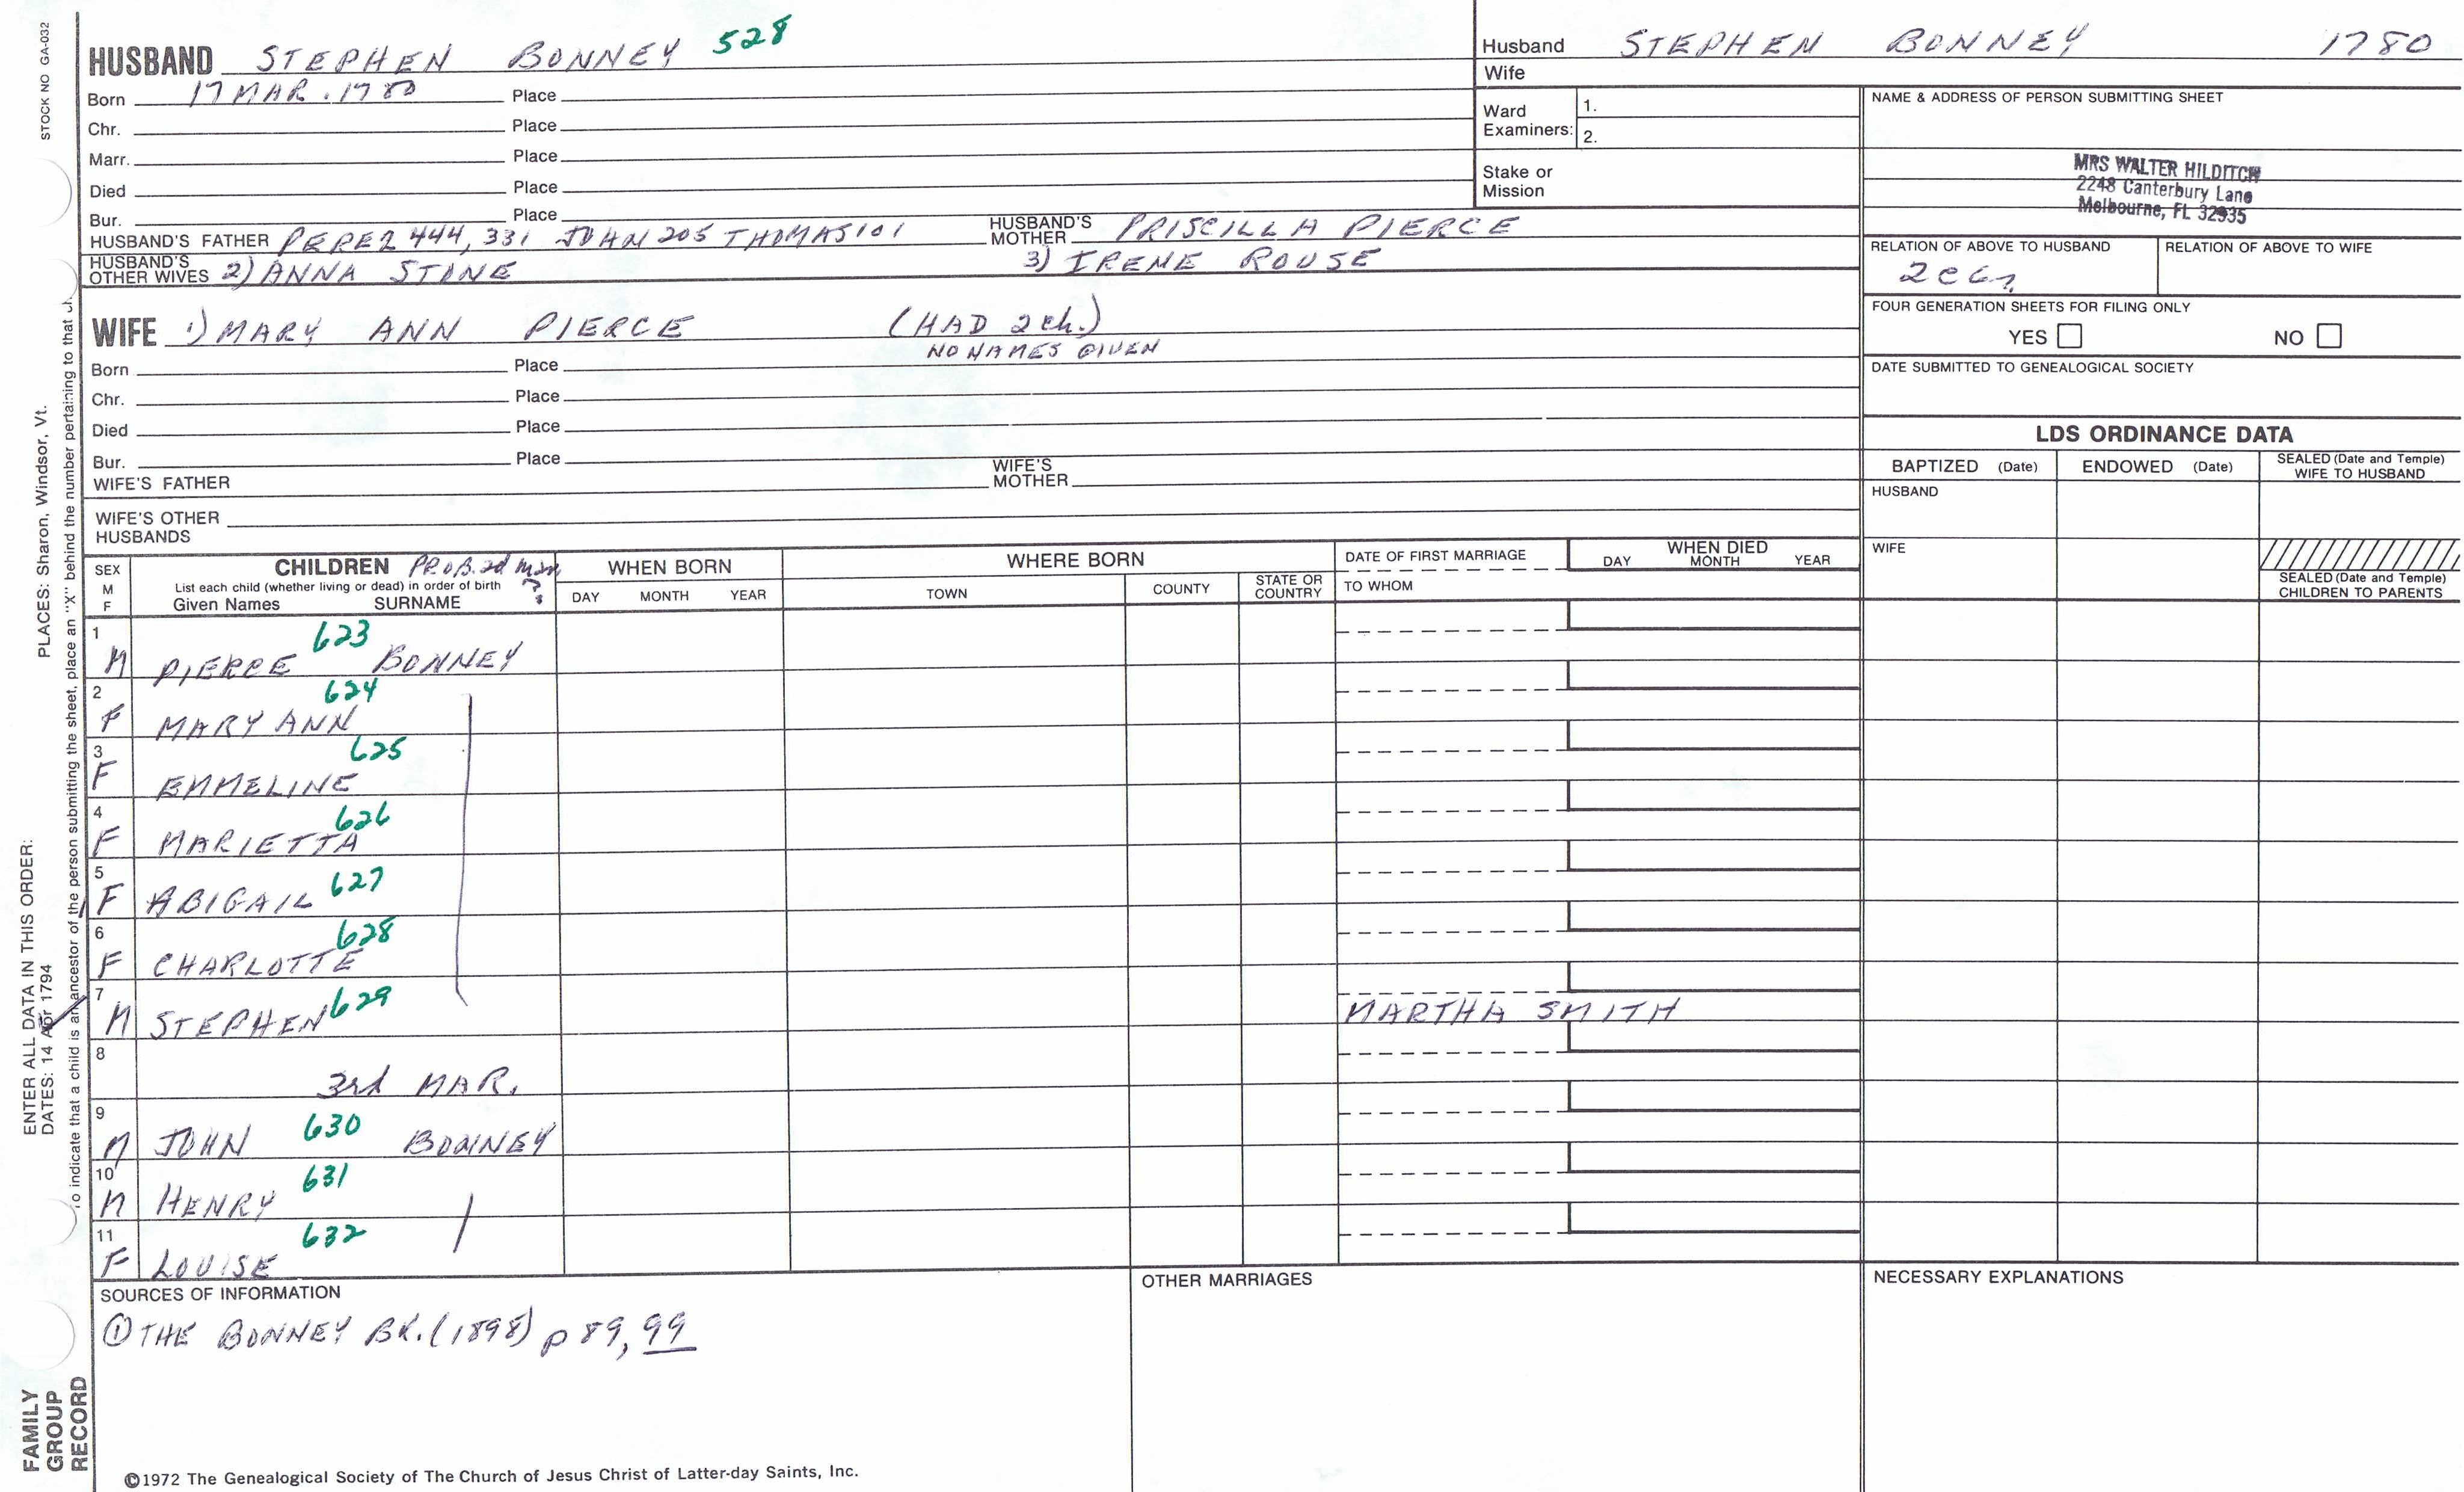 STOCK NO GA-032
HUSBAND STEPHEN BONNEY 528
Born 17 MAR. 1780 Place
Chr. Place
Marr. Place
Died Place
Bur. Place
HUSBAND'S FATHER PEREZ 444, 331 JOHN 205 THOMAS 101 HUSBAND'S MOTHER PRISCILLA PIERCE
HUSBAND'S OTHER WIVES 2) ANNA STONE 3) IRENE ROUSE
WIFE 1) MARY ANN PIERCE (HAD 2 ch.)
NO NAMES GIVEN
Born Place
Chr. Place
Died Place
Bur. Place
WIFE'S FATHER WIFE'S MOTHER
WIFE'S OTHER HUSBANDS
Husband STEPHEN BONNEY 1780
Wife
Ward Examiners: 1.
2.
Stake or Mission
NAME & ADDRESS OF PERSON SUBMITTING SHEET
MRS WALTER HILDITCH
2248 Canterbury Lane
Melbourne, FL 32935
RELATION OF ABOVE TO HUSBAND RELATION OF ABOVE TO WIFE
FOUR GENERATION SHEETS FOR FILING ONLY
YES NO
DATE SUBMITTED TO GENEALOGICAL SOCIETY
LDS ORDINANCE DATA
BAPTIZED (Date) ENDOWED (Date) SEALED (Date and Temple) WIFE TO HUSBAND
HUSBAND
WIFE
SEALED (Date and Temple) CHILDREN TO PARENTS
SEX M F
CHILDREN PROB. 2d mar ?
List each child (whether living or dead) in order of birth
Given Names SURNAME
WHEN BORN
DAY MONTH YEAR
WHERE BORN
TOWN COUNTY STATE OR COUNTRY
DATE OF FIRST MARRIAGE
TO WHOM
WHEN DIED
DAY MONTH YEAR
1 M PIERCE 623 BONNEY
2 F MARY ANN 624
3 F EMMELINE 625
4 F MARIETTA 626
5 F ABIGAIL 627
6 F CHARLOTTE 628
7 M STEPHEN 629 MARTHA SMITH
8 3rd MAR.
9 M JOHN 630 BONNEY
10 M HENRY 631
11 F LOUISE 632
SOURCES OF INFORMATION
① THE BONNEY BK. (1898) p 89, 99
OTHER MARRIAGES
NECESSARY EXPLANATIONS
©1972 The Genealogical Society of The Church of Jesus Christ of Latter-day Saints, Inc.
ENTER ALL DATA IN THIS ORDER:
DATES: 14 Apr 1794 PLACES: Sharon, Windsor, Vt.
To indicate that a child is an ancestor of the person submitting the sheet, place an "X" behind the number pertaining to that
FAMILY GROUP RECORD